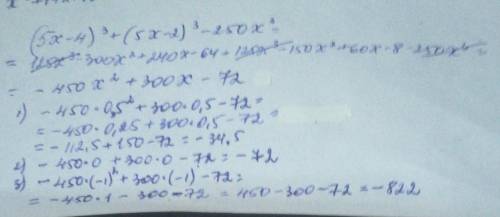 (5x-4)³+(5x-2)³-250x³=
= 125x³-300x²+240x-64+125x³-150x²+60x-8-250x³=
= -450x²+300x-72
1) -450·0,5²+300·0,5-72=
= -450·0,25+300·0,5-72=
= -112,5+150-72=-34,5
2) -450·0+300·0-72=-72
3) -450·(-1)²+300·(-1)-72=
= -450·1-300-72=450-300-72=-822